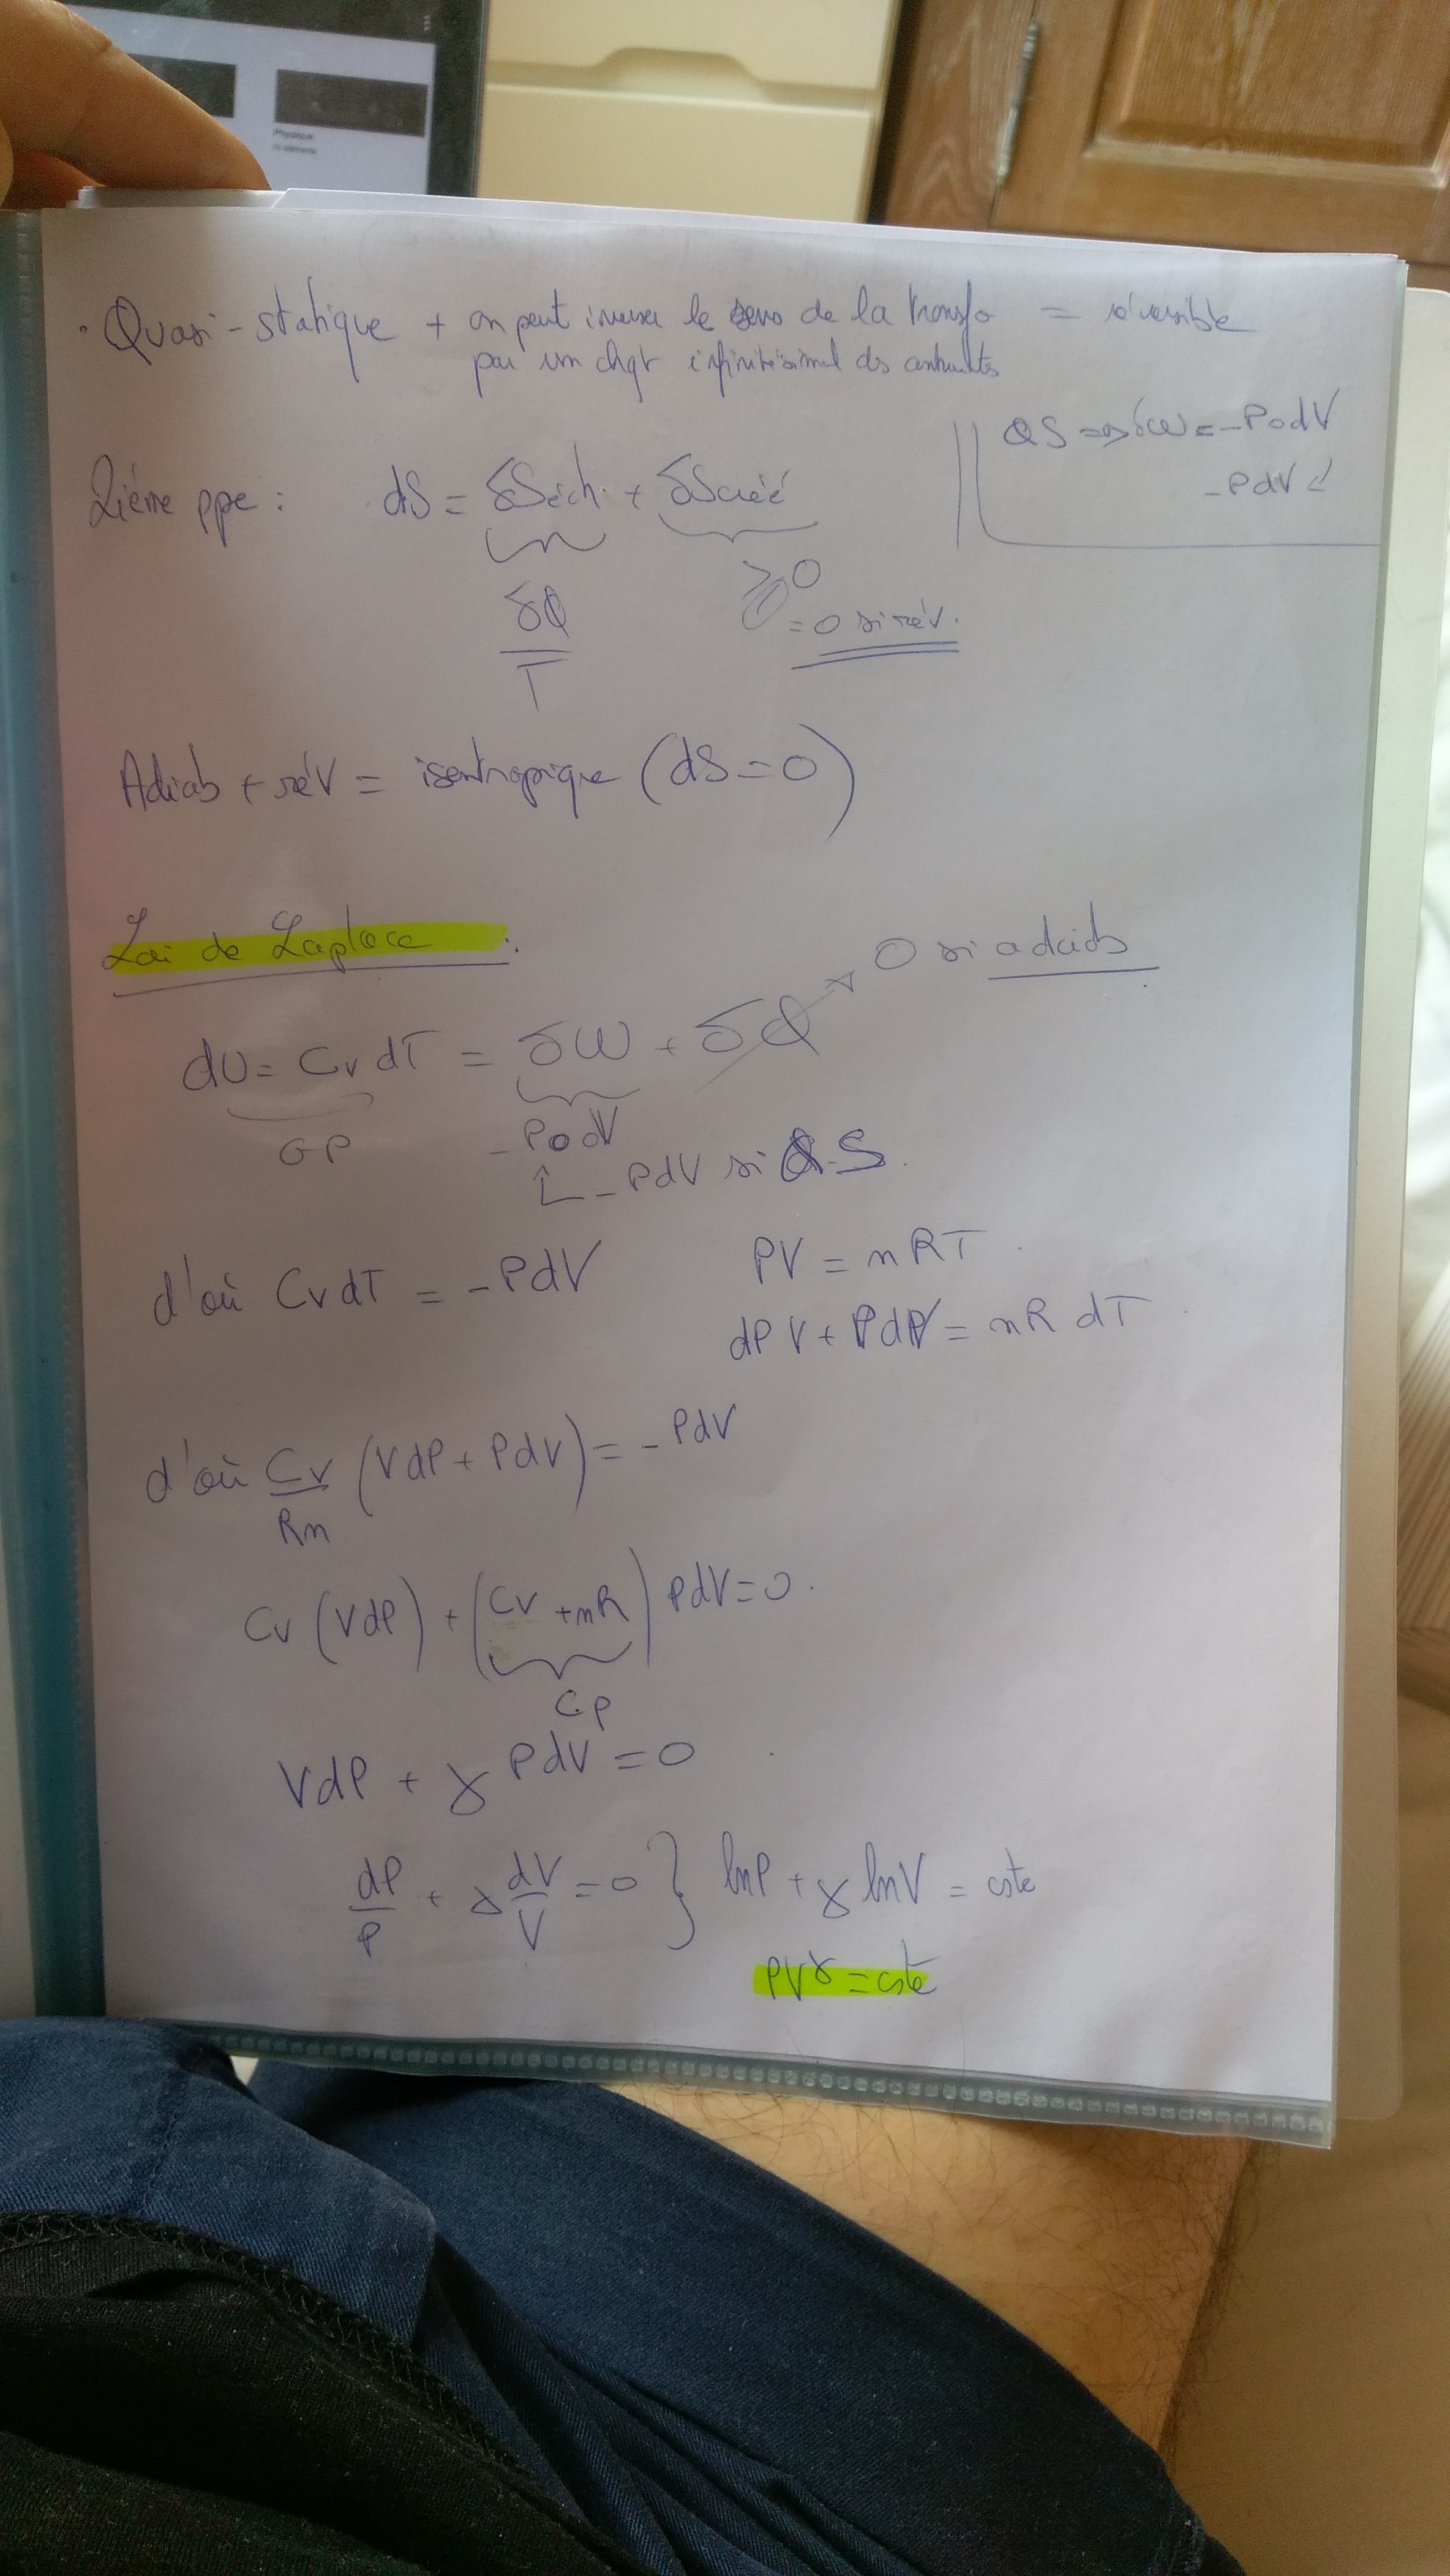 Physique
· Quasi-statique + on peut inverser le sens de la transfo = réversible
par un chgt infinitésimal ds contraintes
QS => δW = -P0dV
-PdV
2ième ppe : dS = δSéch. + δScréé
δQ/T
≥ 0
= 0 si rév.
Adiab + rév = isentropique (dS = 0)
Loi de Laplace :
0 si adiab
dU = Cv dT = δW + δQ
GP
-P0dV
-PdV si QS.
d'où Cv dT = -PdV
PV = nRT
dP V + PdV = nR dT
d'où Cv/Rn (VdP + PdV) = -PdV
Cv (VdP) + (Cv + nR) PdV = 0.
Cp
VdP + γ PdV = 0
dP/P + γ dV/V = 0 } lnP + γ lnV = cste
PV^γ = cste